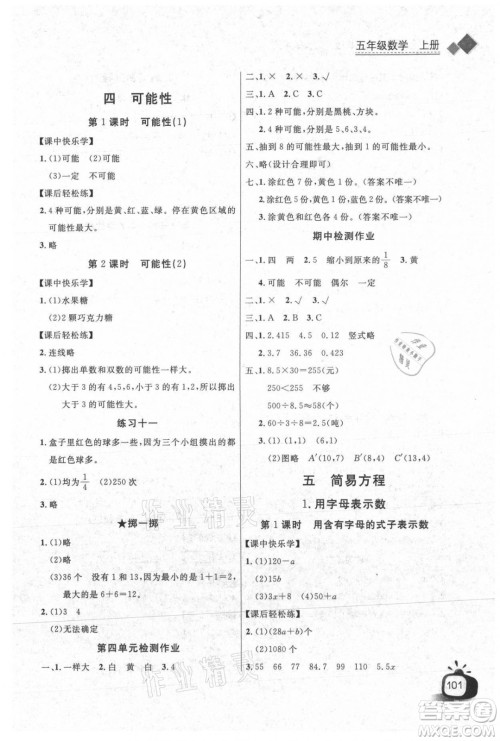 五年级数学 上册
四 可能性
第1课时 可能性(1)
【课中快乐学】
1.(1)可能 (2)可能
(3)一定 不可能
【课后轻松练】
2.4种可能,分别是黄、红、蓝、绿。停在黄色区域的
可能性最大。
3.略
第2课时 可能性(2)
【课中快乐学】
1.(1)水果糖
(2)2颗巧克力糖
【课后轻松练】
2.连线略
3.(1)掷出单数和双数的可能性一样大。
(2)大于3的有4,5,6,小于3的有1,2,所以大于
3的可能性大。
练习十一
1.盒子里红色的球多一些,因为三个小组摸出的都
是红色球多。
2.(1)均为1/4 (2)250次
3.略
★掷一掷
1.(1)略
(2)略
(3)36个 因为两个骰子掷出来最小的是1+1=2,
最大的是6+6=12。
2.(1)3 4
(2)无法确定
第四单元检测作业
一、1.一样大 2.黄 白 3.4
二、1.× 2.× 3.√
三、1.A 2.A 3.C
四、1.2种可能,分别是黑桃、方块。
2.4种可能,分别是5,6,3,4。
五、抽到8的可能性大,抽到11的可能性大。
六、略(设计合理即可)
七、1.涂红色7份,黄色1份。(答案不唯一)
2.涂红色1份,黄色5份。(答案不唯一)
3.涂黄色和红色各4份。(答案不唯一)
期中检测作业
一、1.四 两 2.5 缩小到原来的1/8 3.黄
4.可能 不可能 偶尔 一定
二、1.× 2.× 3.√
三、1.B 2.A 3.B
四、1.2.415 4.5 竖式略
2.1.3 7.6 24 0.91
五、1.8.5×30=255(元)
250<255 不够
500÷8.5≈58(本)
2.60÷3÷5=4(元)
3.(2)图略 A′(10,7) C′(13,6)
五 简易方程
1.用字母表示数
第1课时 用含有字母的式子表示数
【课中快乐学】
1.(1)20a
(2)15b
(3)3x+8
(4)a-b
【课后轻松练】
2.(1)(28-a)
(2)12x
3.55 66 77 88 94 99 110 5.5x
101